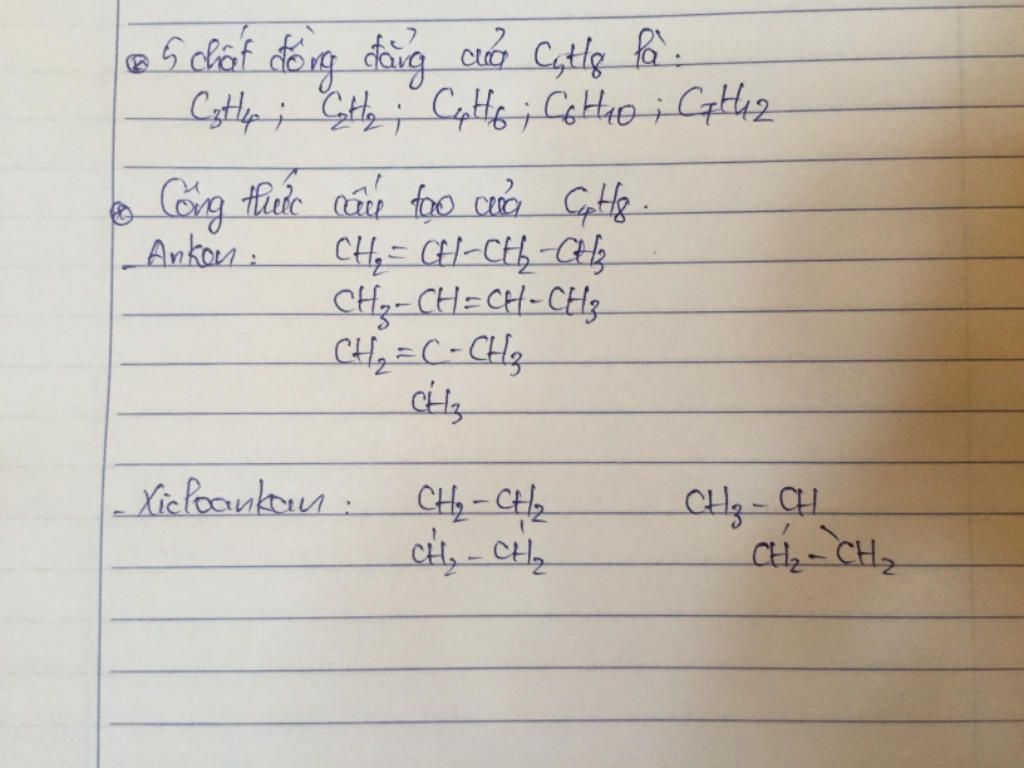 5 chất đồng đẳng của C5H8 là:
C3H4; C2H2; C4H6; C6H10; C7H12
Công thức cấu tạo của C4H8.
- Anken: CH2=CH-CH2-CH3
CH3-CH=CH-CH3
CH2=C-CH3
CH3
- Xicloankan: CH2-CH2 CH3-CH
CH2-CH2 CH2-CH2